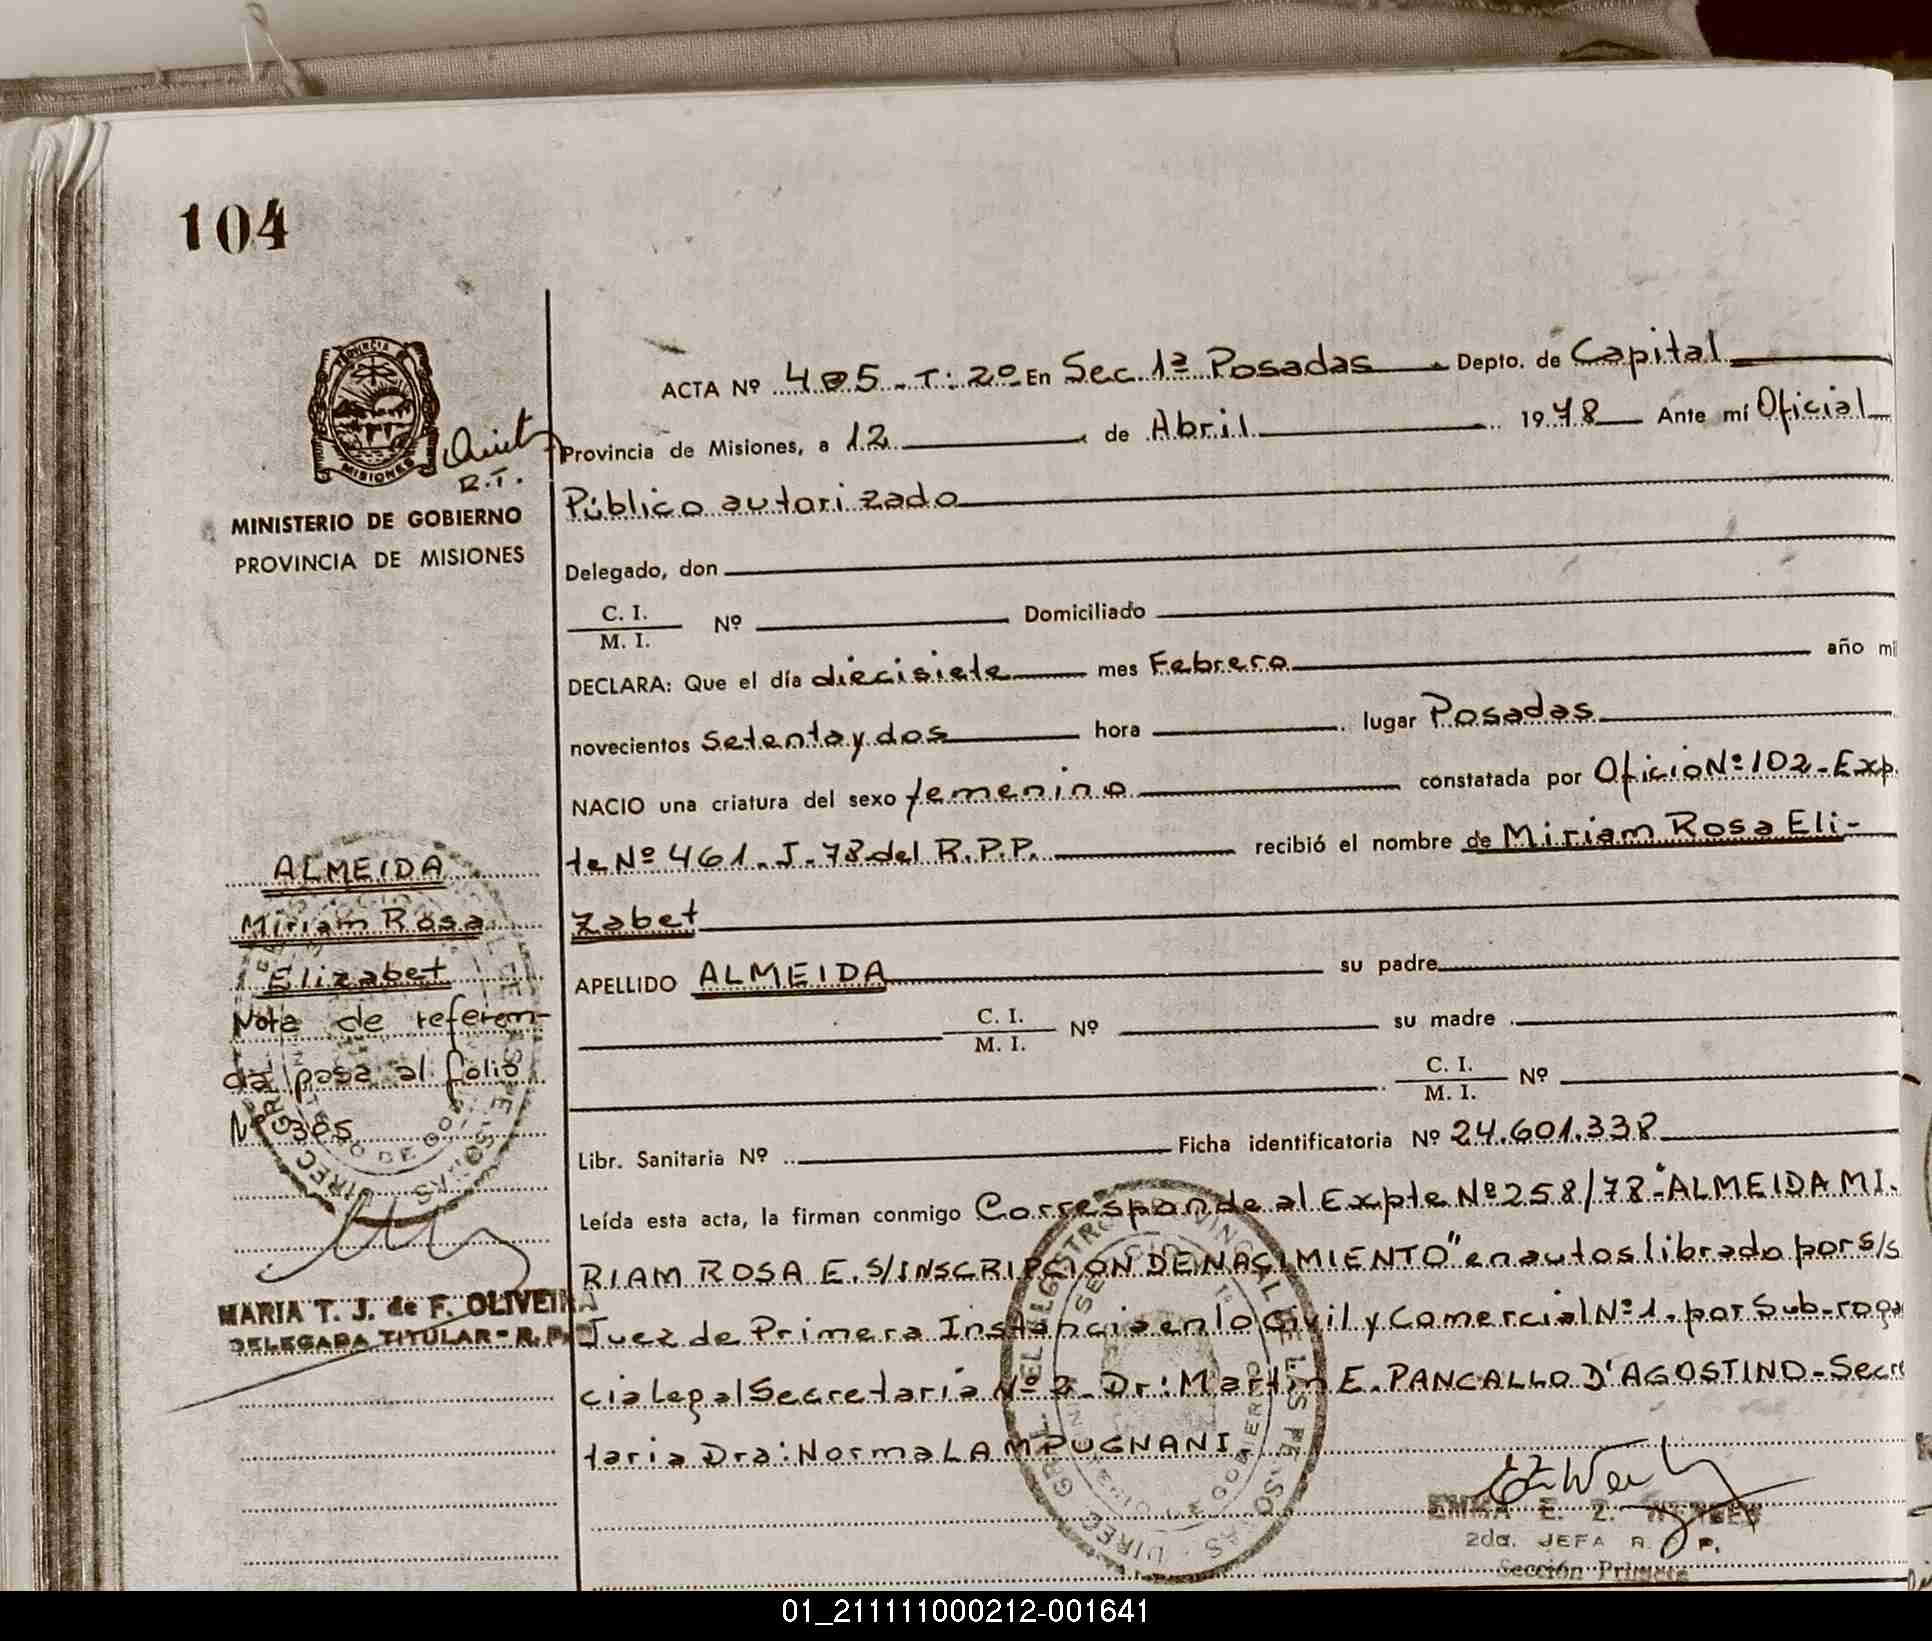 104
PROVINCIA DE
MISIONES
R.T.
MINISTERIO DE GOBIERNO
PROVINCIA DE MISIONES
ACTA Nº 405 - T: 2º En Sec. 1ª Posadas Depto. de Capital
Provincia de Misiones, a 12 de Abril 1978 Ante mí Oficial
Público autorizado
Delegado, don
C. I.
M. I. Nº Domiciliado
DECLARA: Que el día diecisiete mes Febrero año mil
novecientos setenta y dos hora lugar Posadas
NACIO una criatura del sexo femenino constatada por Oficio Nº 102 - Exp.
te Nº 461 - J - 78 del R.P.P. recibió el nombre de Miriam Rosa Eli-
zabet
APELLIDO ALMEIDA su padre
C. I.
M. I. Nº su madre
C. I.
M. I. Nº
Libr. Sanitaria Nº Ficha identificatoria Nº 24.601.338
Leída esta acta, la firman conmigo Corresponde al Expte Nº 258/78 "ALMEIDA MI-
RIAM ROSA E. S/INSCRIPCION DE NACIMIENTO" en autos librado por S/S
Juez de Primera Instancia en lo Civil y Comercial Nº 1. por Sub-roga
cia Legal Secretaria Nº 2 - Dr: Martin E. PANCALLO D'AGOSTINO - Secre
taria Dra: Norma LAMPUGNANI.
ALMEIDA
Miriam Rosa
Elizabet
Nota de referen-
cia pasa al folio
Nº 305
MARIA T. J. de F. OLIVEIRA
DELEGADA TITULAR - R. P.
EMMA E. Z.
2da. JEFA R. P.
Sección Primera
01_211111000212-001641